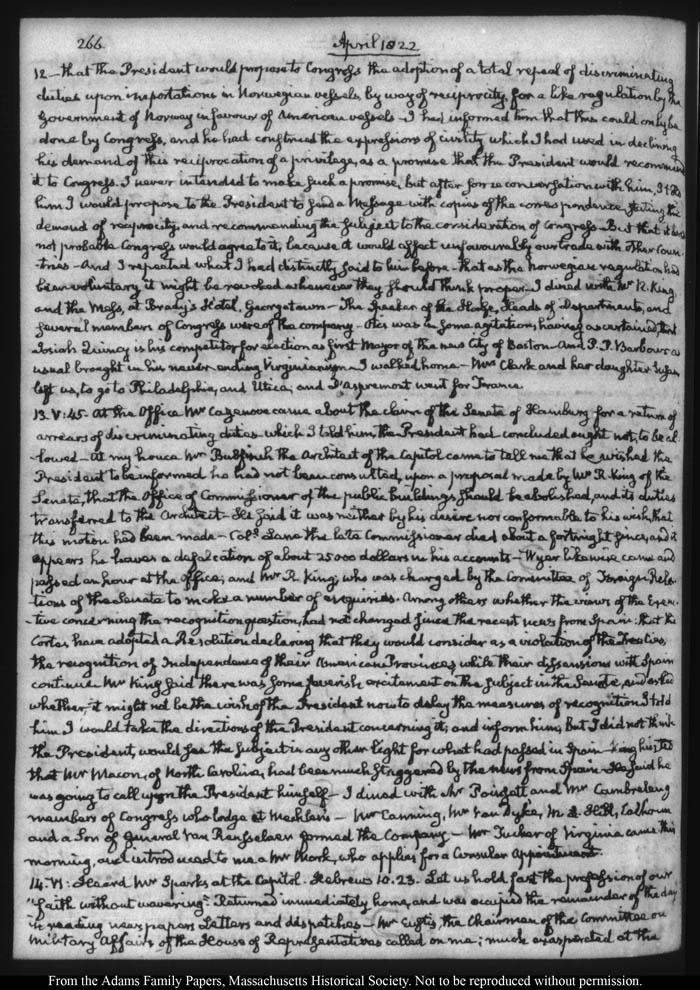 266.
April 1822
12 – that the President would propose to Congress the adoption of a total repeal of discriminating
duties upon importations in Norwegian vessels, by way of reciprocity for a like regulation by the
Government of Norway in favour of American vessels – I had informed him that this could only be
done by Congress, and he had construed the expressions of civility which I had used in declining
his demand of this reciprocation of a privilege, as a promise that the President would recommend
it to Congress. I never intended to make such a promise, but after some conversation with him, I told
him I would propose to the President to send a Message with copies of the correspondence, stating the
demand of reciprocity, and recommending the subject to the consideration of Congress – But that it was
not probable Congress would agree to it, because it would affect unfavourably our trade with other Coun-
-tries – And I repeated what I had distinctly said to him before – that as the Norwegian regulation had
been voluntary, it might be revoked whenever they should think proper – I dined with Mr R. King,
and the Mess, at Brady's Hotel, Georgetown – The Speaker of the House, Heads of Departments, and
several members of Congress were of the company – Otis was in some agitation, having ascertained that
Josiah Quincy is his competitor for election as first Mayor of the new City of Boston – And P. P. Barbour as
usual brought in his never ending Virginianism – I walked home – Mrs Clark and her daughter Susan
left us, to go to Philadelphia, and Utica; and D'aspremont went for France.
13. V:45. At the Office Mr Cazenove came about the claim of the Senate of Hamburg for a return of
arrears of discriminating duties which I told him, the President had concluded ought not, to be al-
-lowed – At my house Mr Bulfinch the Architect of the Capitol came to tell me that he wished the
President to be informed he had not been consulted, upon a proposal made by Mr R. King of the
Senate, that the Office of Commissioner of the public buildings should be abolished, and its duties
transferred to the Architect – He said it was neither by his desire nor conformable to his wish, that
this motion had been made – Coll. Lane the late Commissioner died about a fortnight since, and it
appears he leaves a defalcation of about 25000 dollars in his accounts – Wyer likewise came and
passed an hour at the Office; and Mr R. King, who was charged by the Committee of Foreign Rela-
tions of the Senate to make a number of enquiries. Among others whether the views of the Execu-
-tive concerning the recognition question, had not changed since the recent news from Spain: that the
Cortes have adopted a Resolution declaring that they would consider as a violation of the Treaties,
the recognition of Independence of their American Provinces while their dissensions with Spain
continue. Mr King said there was some feverish excitement on the subject in the Senate, and asked
whether it might not be the wish of the President now to delay the measures of recognition. I told
him I would take the directions of the President concerning it, and inform him, But I did not think
the President, would see the subject in any other light for what had passed in Spain – King hinted
that Mr Macon, of North Carolina, had been much staggered by the news from Spain – He said he
was going to call upon the President himself – I dined with Mr Poinsett and Mr Cambreleng
members of Congress who lodge at Mechlin's – Mr Canning, Mr Van Dyke, M. Hill, Calhoun
and a Son of General Van Rensselaer formed the Company – Mr Tucker of Virginia came this
morning, and introduced to me a Mr Mark, who applies for a Consular Appointment.
14. VI: Heard Mr Sparks at the Capitol. Hebrews 10.23. Let us hold fast the profession of our
"faith without wavering." Returned immediately home, and was occupied the remainder of the day
in reading newspapers Letters and dispatches – Mr Eustis, the Chairman of the Committee on
Military Affairs of the House of Representatives called on me; much exasperated at the
From the Adams Family Papers, Massachusetts Historical Society. Not to be reproduced without permission.